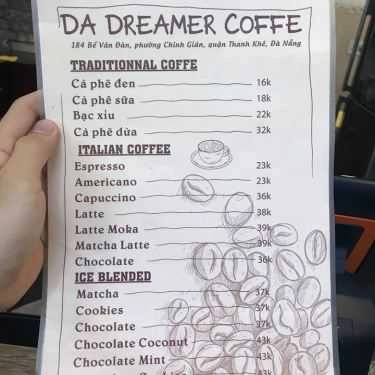 DA DREAMER COFFE
184 Bế Văn Đàn, phường Chính Gián, quận Thanh Khê, Đà Nẵng
TRADITIONNAL COFFE
Cà phê đen 16k
Cà phê sữa 18k
Bạc xỉu 22k
Cà phê dừa 32k
ITALIAN COFFEE
Espresso 23k
Americano 23k
Capuccino 36k
Latte 38k
Latte Moka 39k
Matcha Latte 39k
Chocolate 36k
ICE BLENDED
Matcha 37k
Cookies 37k
Chocolate 37k
Chocolate Coconut 43k
Chocolate Mint 43k